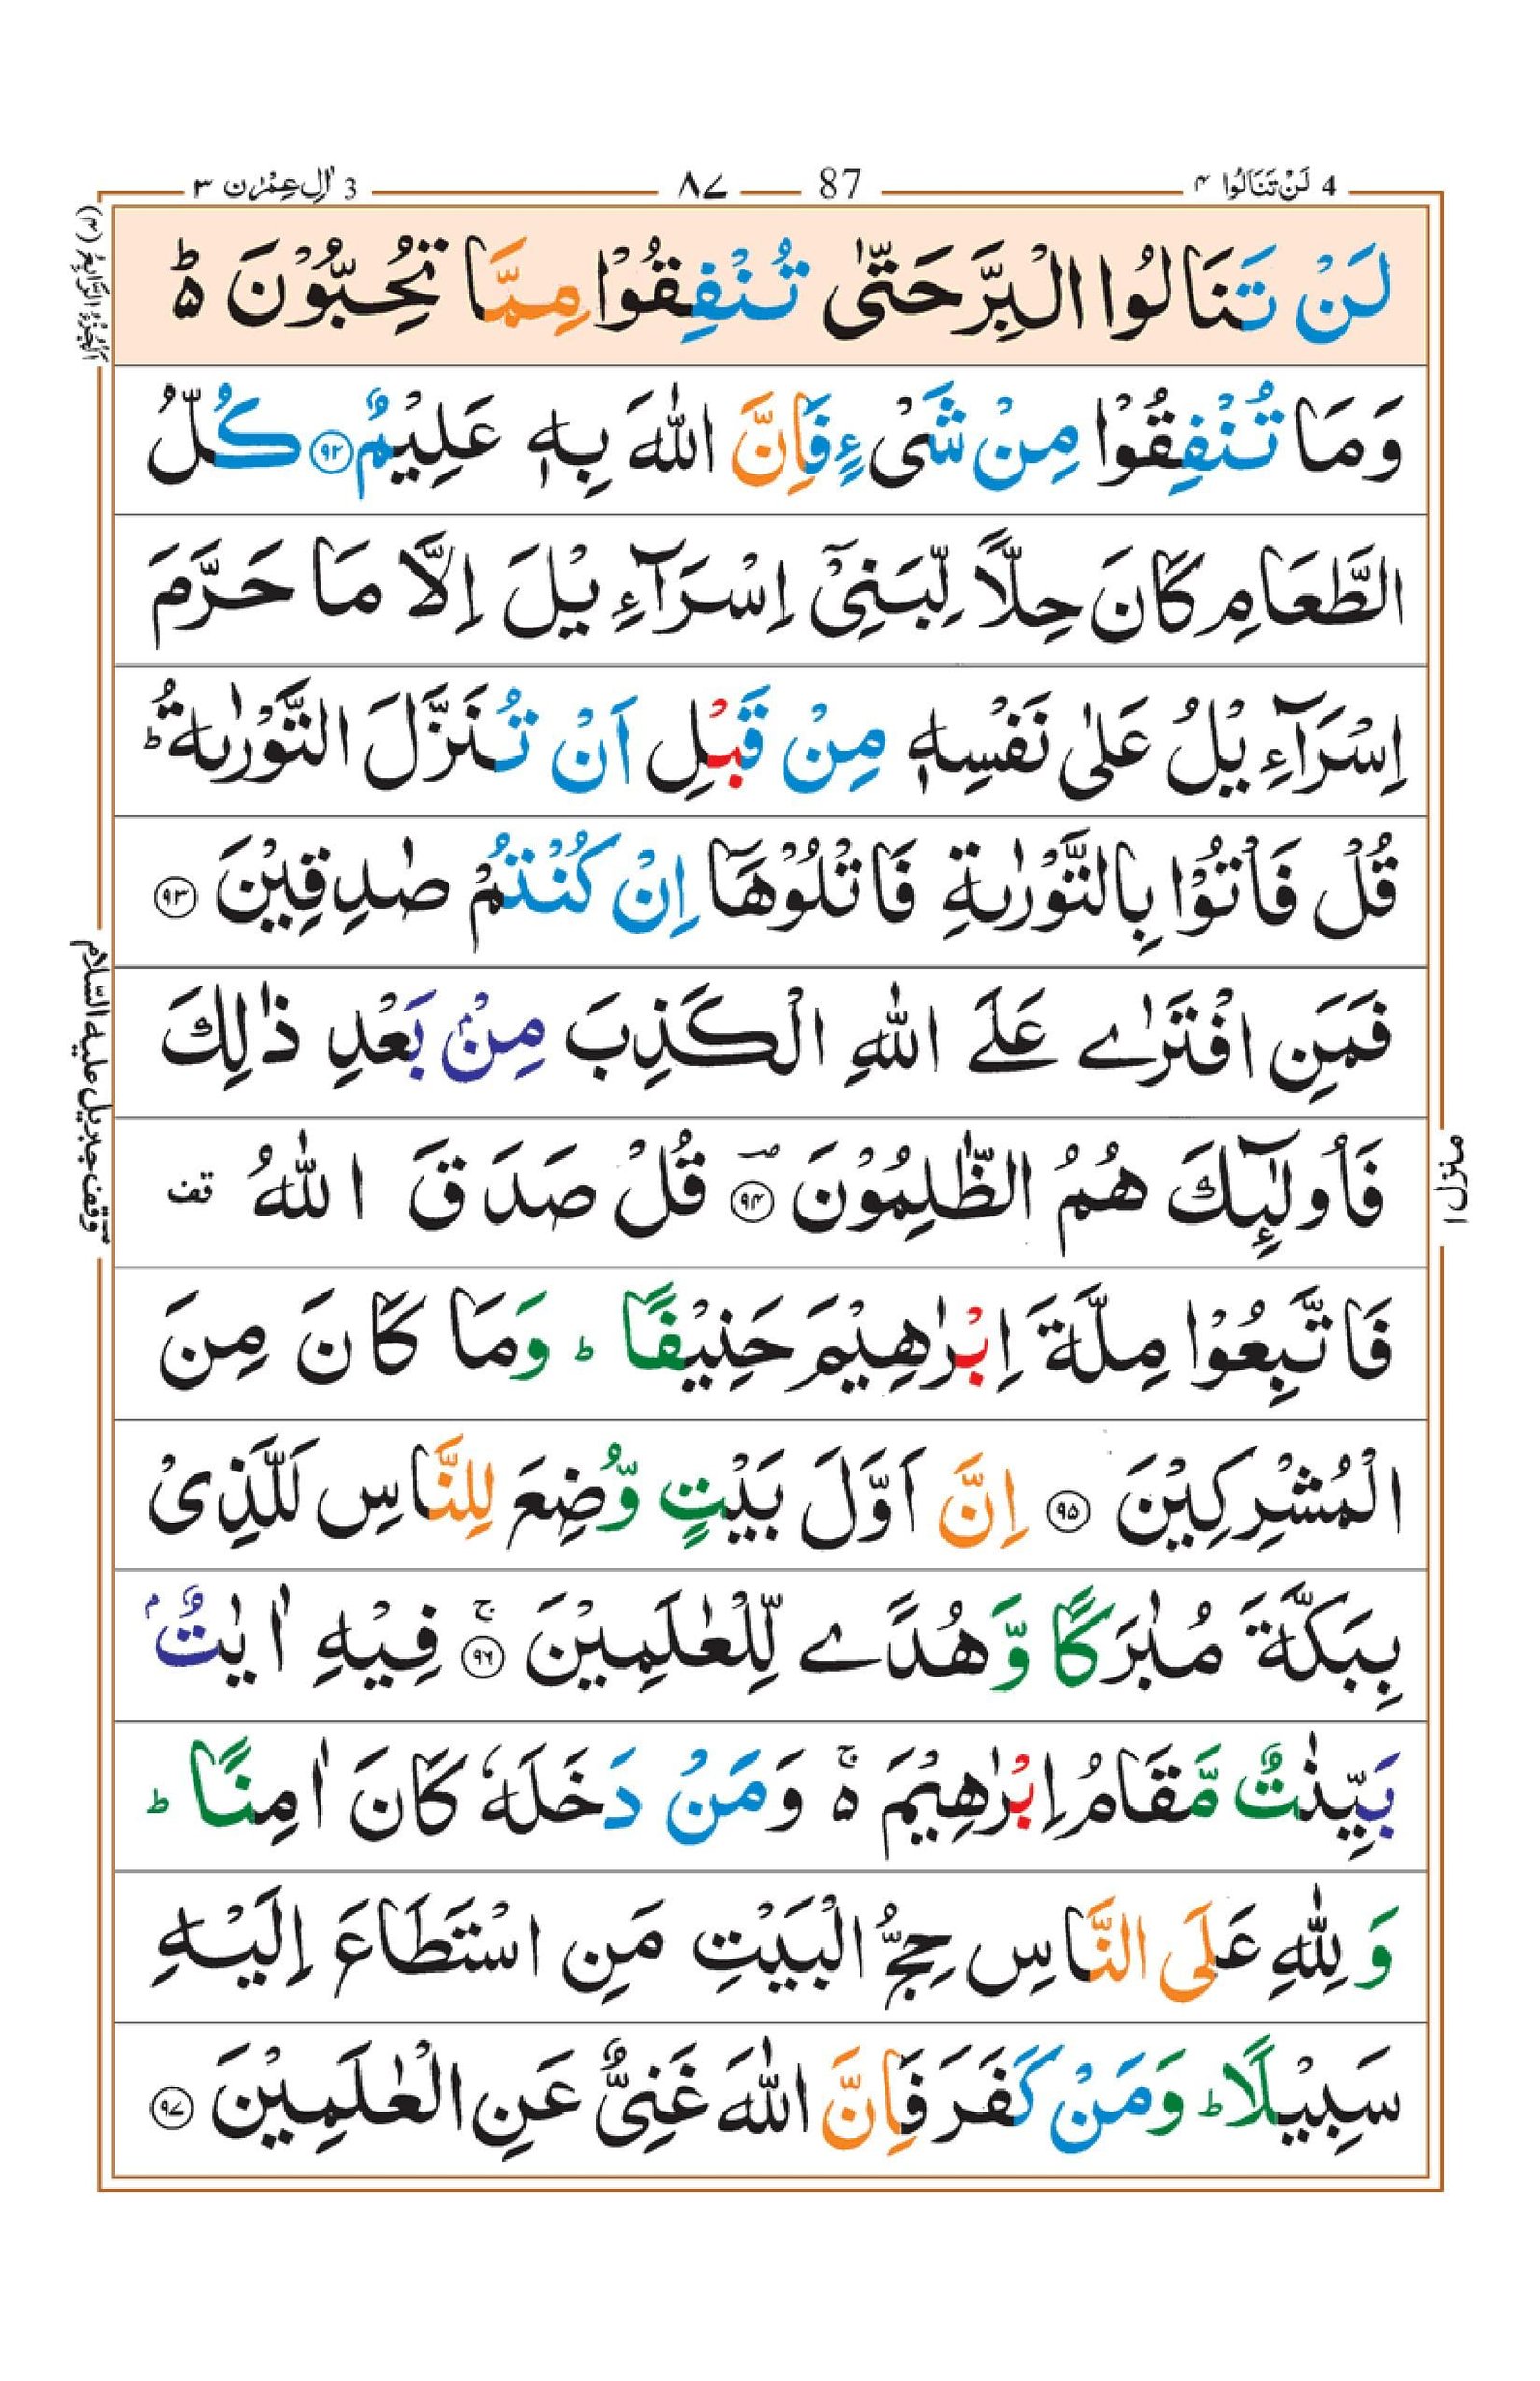 4 لَنْ تَنَالُوا ۴ 87 ۸۷ 3 اٰلِ عِمْرٰن ۳
اَلْجُزْءُ الرَّابِعُ (۴)
لَنْ تَنَالُوا الْبِرَّ حَتّٰى تُنْفِقُوْا مِمَّا تُحِبُّوْنَ ؕ۬
وَمَا تُنْفِقُوْا مِنْ شَىْءٍ فَاِنَّ اللّٰهَ بِهٖ عَلِيْمٌ ﴿۹۲﴾ كُلُّ
الطَّعَامِ كَانَ حِلًّا لِّبَنِىْٓ اِسْرَآءِيْلَ اِلَّا مَا حَرَّمَ
اِسْرَآءِيْلُ عَلٰى نَفْسِهٖ مِنْ قَبْلِ اَنْ تُنَزَّلَ التَّوْرٰىةُ ؕ
قُلْ فَاْتُوْا بِالتَّوْرٰىةِ فَاتْلُوْهَاۤ اِنْ كُنْتُمْ صٰدِقِيْنَ ﴿۹۳﴾
فَمَنِ افْتَرٰے عَلَے اللّٰهِ الْكَذِبَ مِنْۢ بَعْدِ ذٰلِكَ
فَاُولٰٓئِكَ هُمُ الظّٰلِمُوْنَ ﴿۹۴﴾ؔ قُلْ صَدَقَ اللّٰهُ قف
فَاتَّبِعُوْا مِلَّةَ اِبْرٰهِيْمَ حَنِيْفًا ؕ وَمَا كَانَ مِنَ
الْمُشْرِكِيْنَ ﴿۹۵﴾ اِنَّ اَوَّلَ بَيْتٍ وُّضِعَ لِلنَّاسِ لَلَّذِىْ
بِبَكَّةَ مُبٰرَكًا وَّهُدًے لِّلْعٰلَمِيْنَ ﴿۹۶﴾ۚ فِيْهِ اٰيٰتٌۢ
بَيِّنٰتٌ مَّقَامُ اِبْرٰهِيْمَ ۚ۬ وَمَنْ دَخَلَهٗ كَانَ اٰمِنًا ؕ
وَلِلّٰهِ عَلَى النَّاسِ حِجُّ الْبَيْتِ مَنِ اسْتَطَاعَ اِلَيْهِ
سَبِيْلًا ؕ وَمَنْ كَفَرَ فَاِنَّ اللّٰهَ غَنِىٌّ عَنِ الْعٰلَمِيْنَ ﴿۹۷﴾
وقف جبريل عليه السّلام
منزل ۱